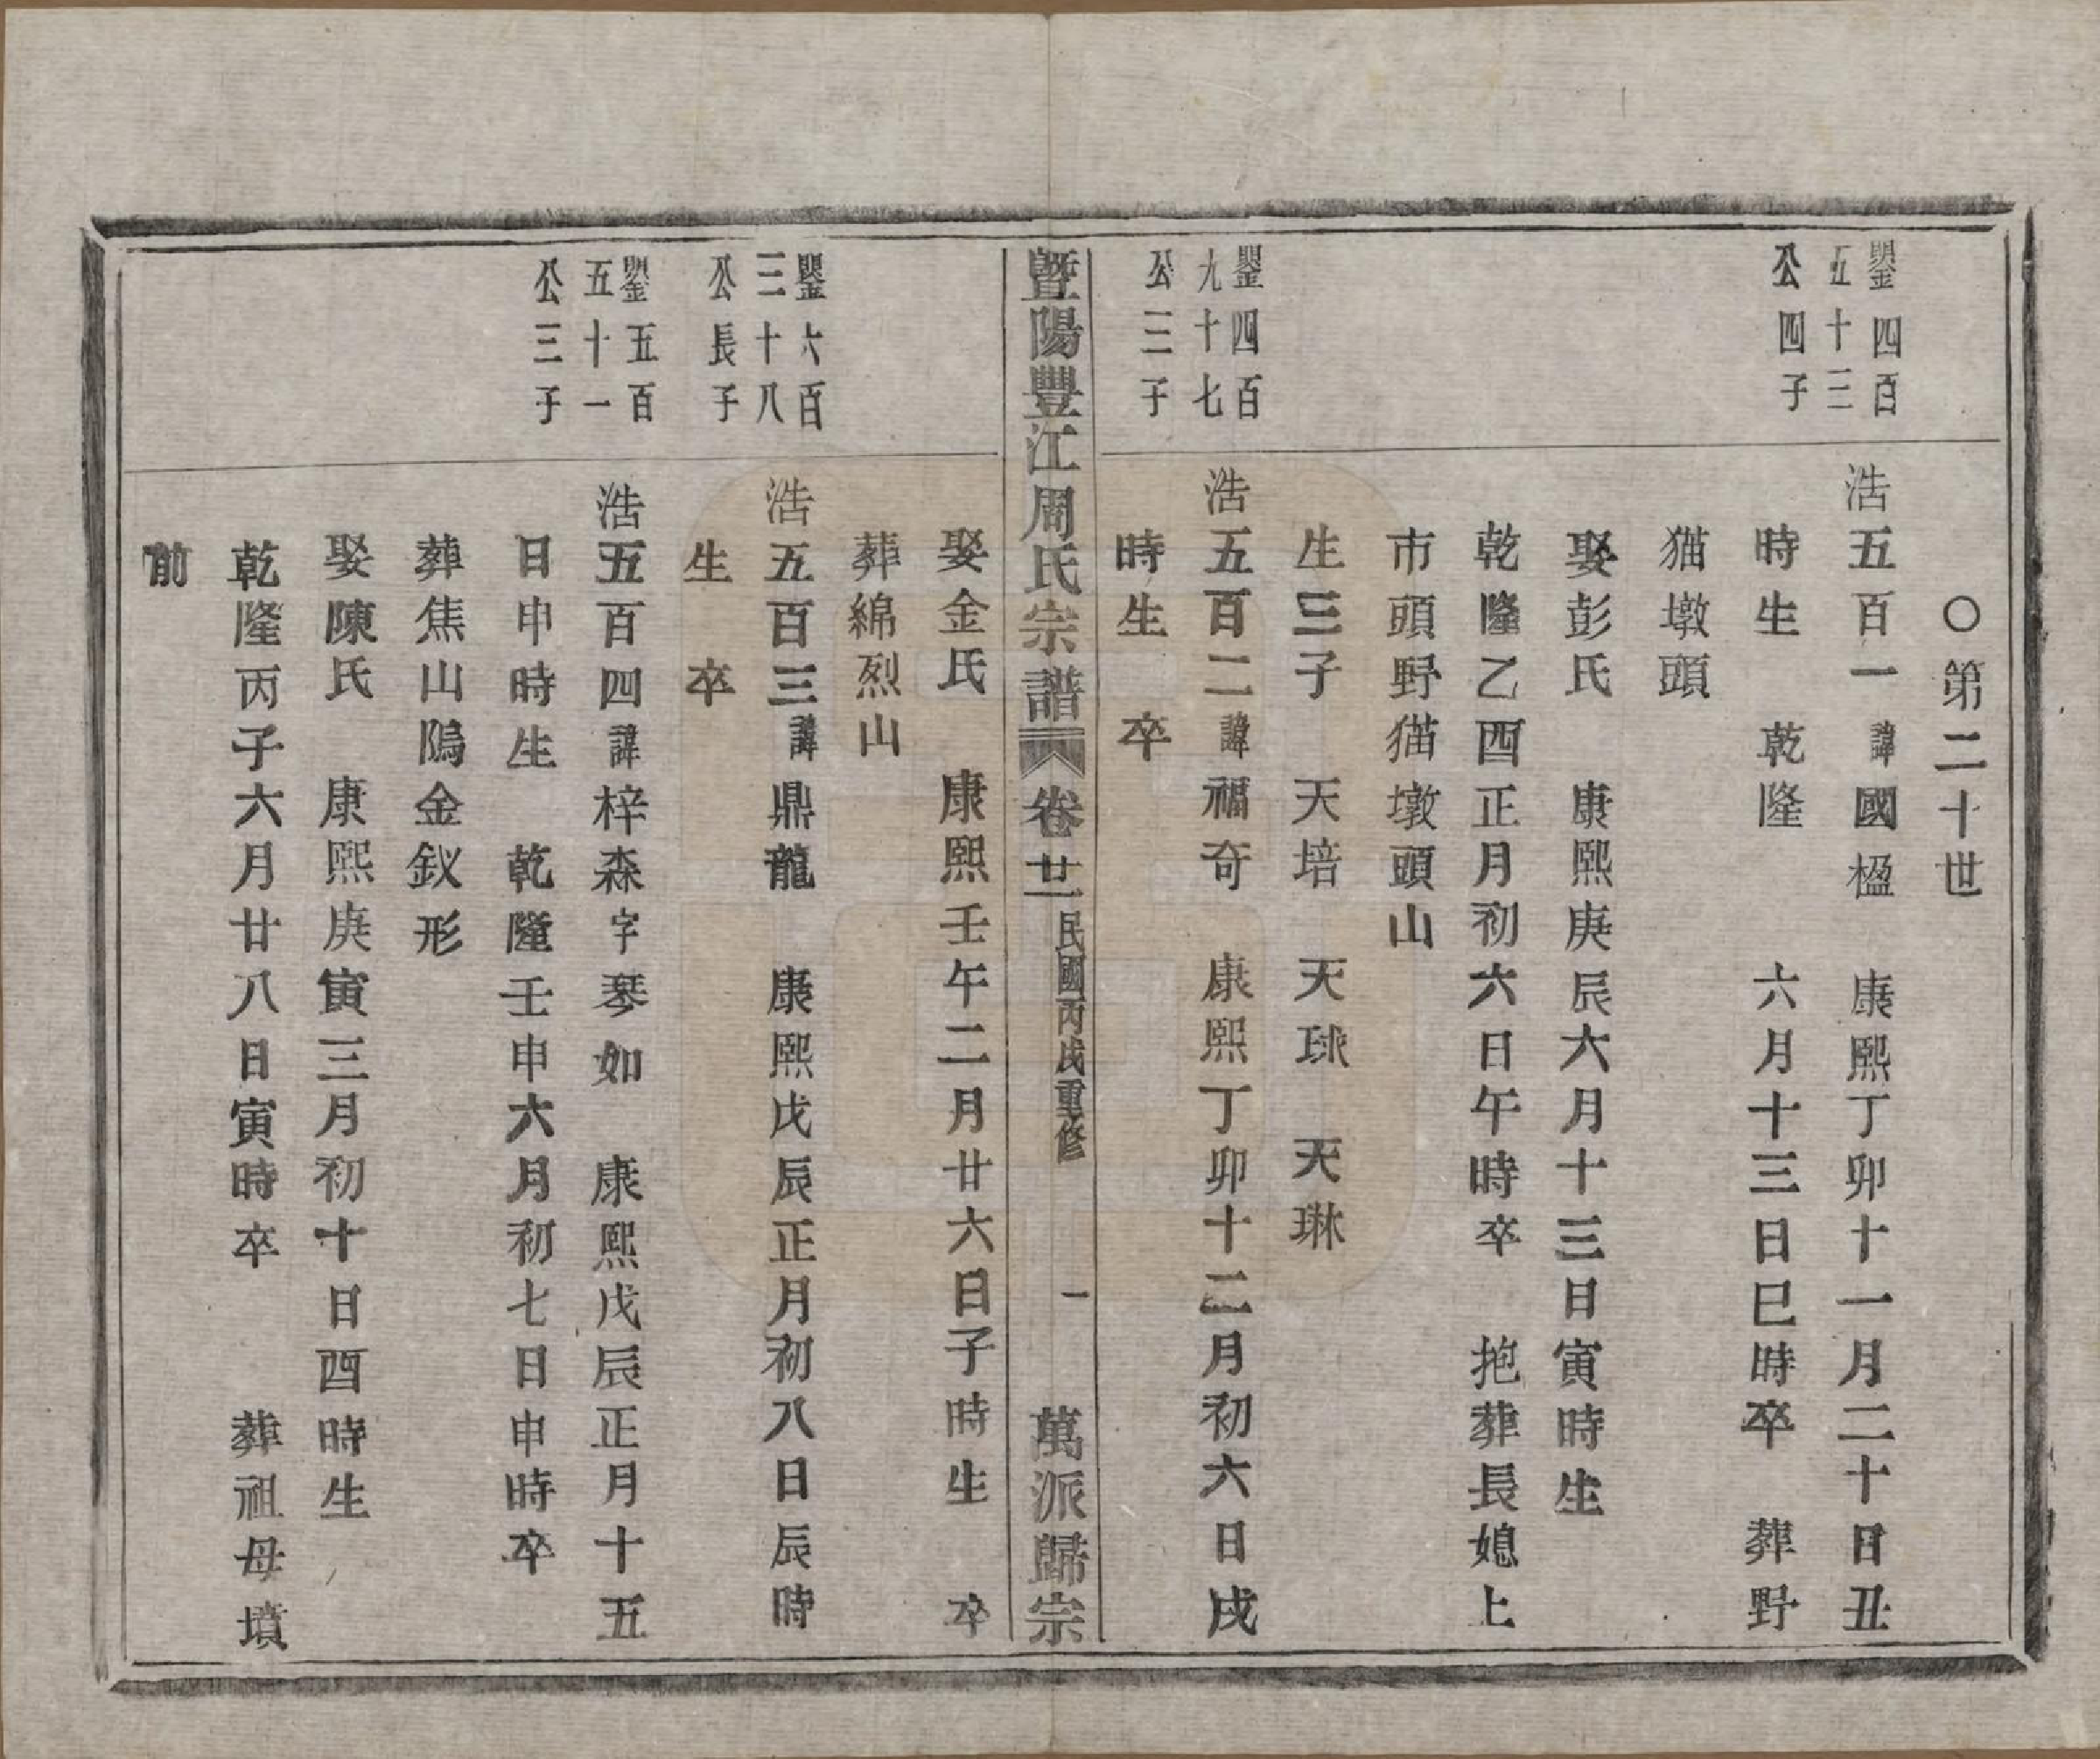 ○第二十世
鑍四百
五十三
公四子
浩五百一諱國楹 康熙丁卯十一月二十日丑
時生 乾隆 六月十三日巳時卒 葬野
猫墩頭
娶彭氏 康熙庚辰六月十三日寅時生
乾隆乙酉正月初六日午時卒 抱葬長媳上
市頭野猫墩頭山
生三子 天培 天球 天琳
鑍四百
九十七
公三子
浩五百二諱福奇 康熙丁卯十二月初六日戌
時生 卒
暨陽豐江周氏宗譜 卷廿一 民國丙戌重修 一 萬派歸宗
娶金氏 康熙壬午二月廿六日子時生 卒
葬綿烈山
鑍六百
三十八
公長子
浩五百三諱鼎龍 康熙戊辰正月初八日辰時
生 卒
鑍五百
五十一
公三子
浩五百四諱梓森字琴如 康熙戊辰正月十五
日申時生 乾隆壬申六月初七日申時卒
葬焦山隖金釵形
娶陳氏 康熙庚寅三月初十日酉時生
乾隆丙子六月廿八日寅時卒 葬祖母墳
前